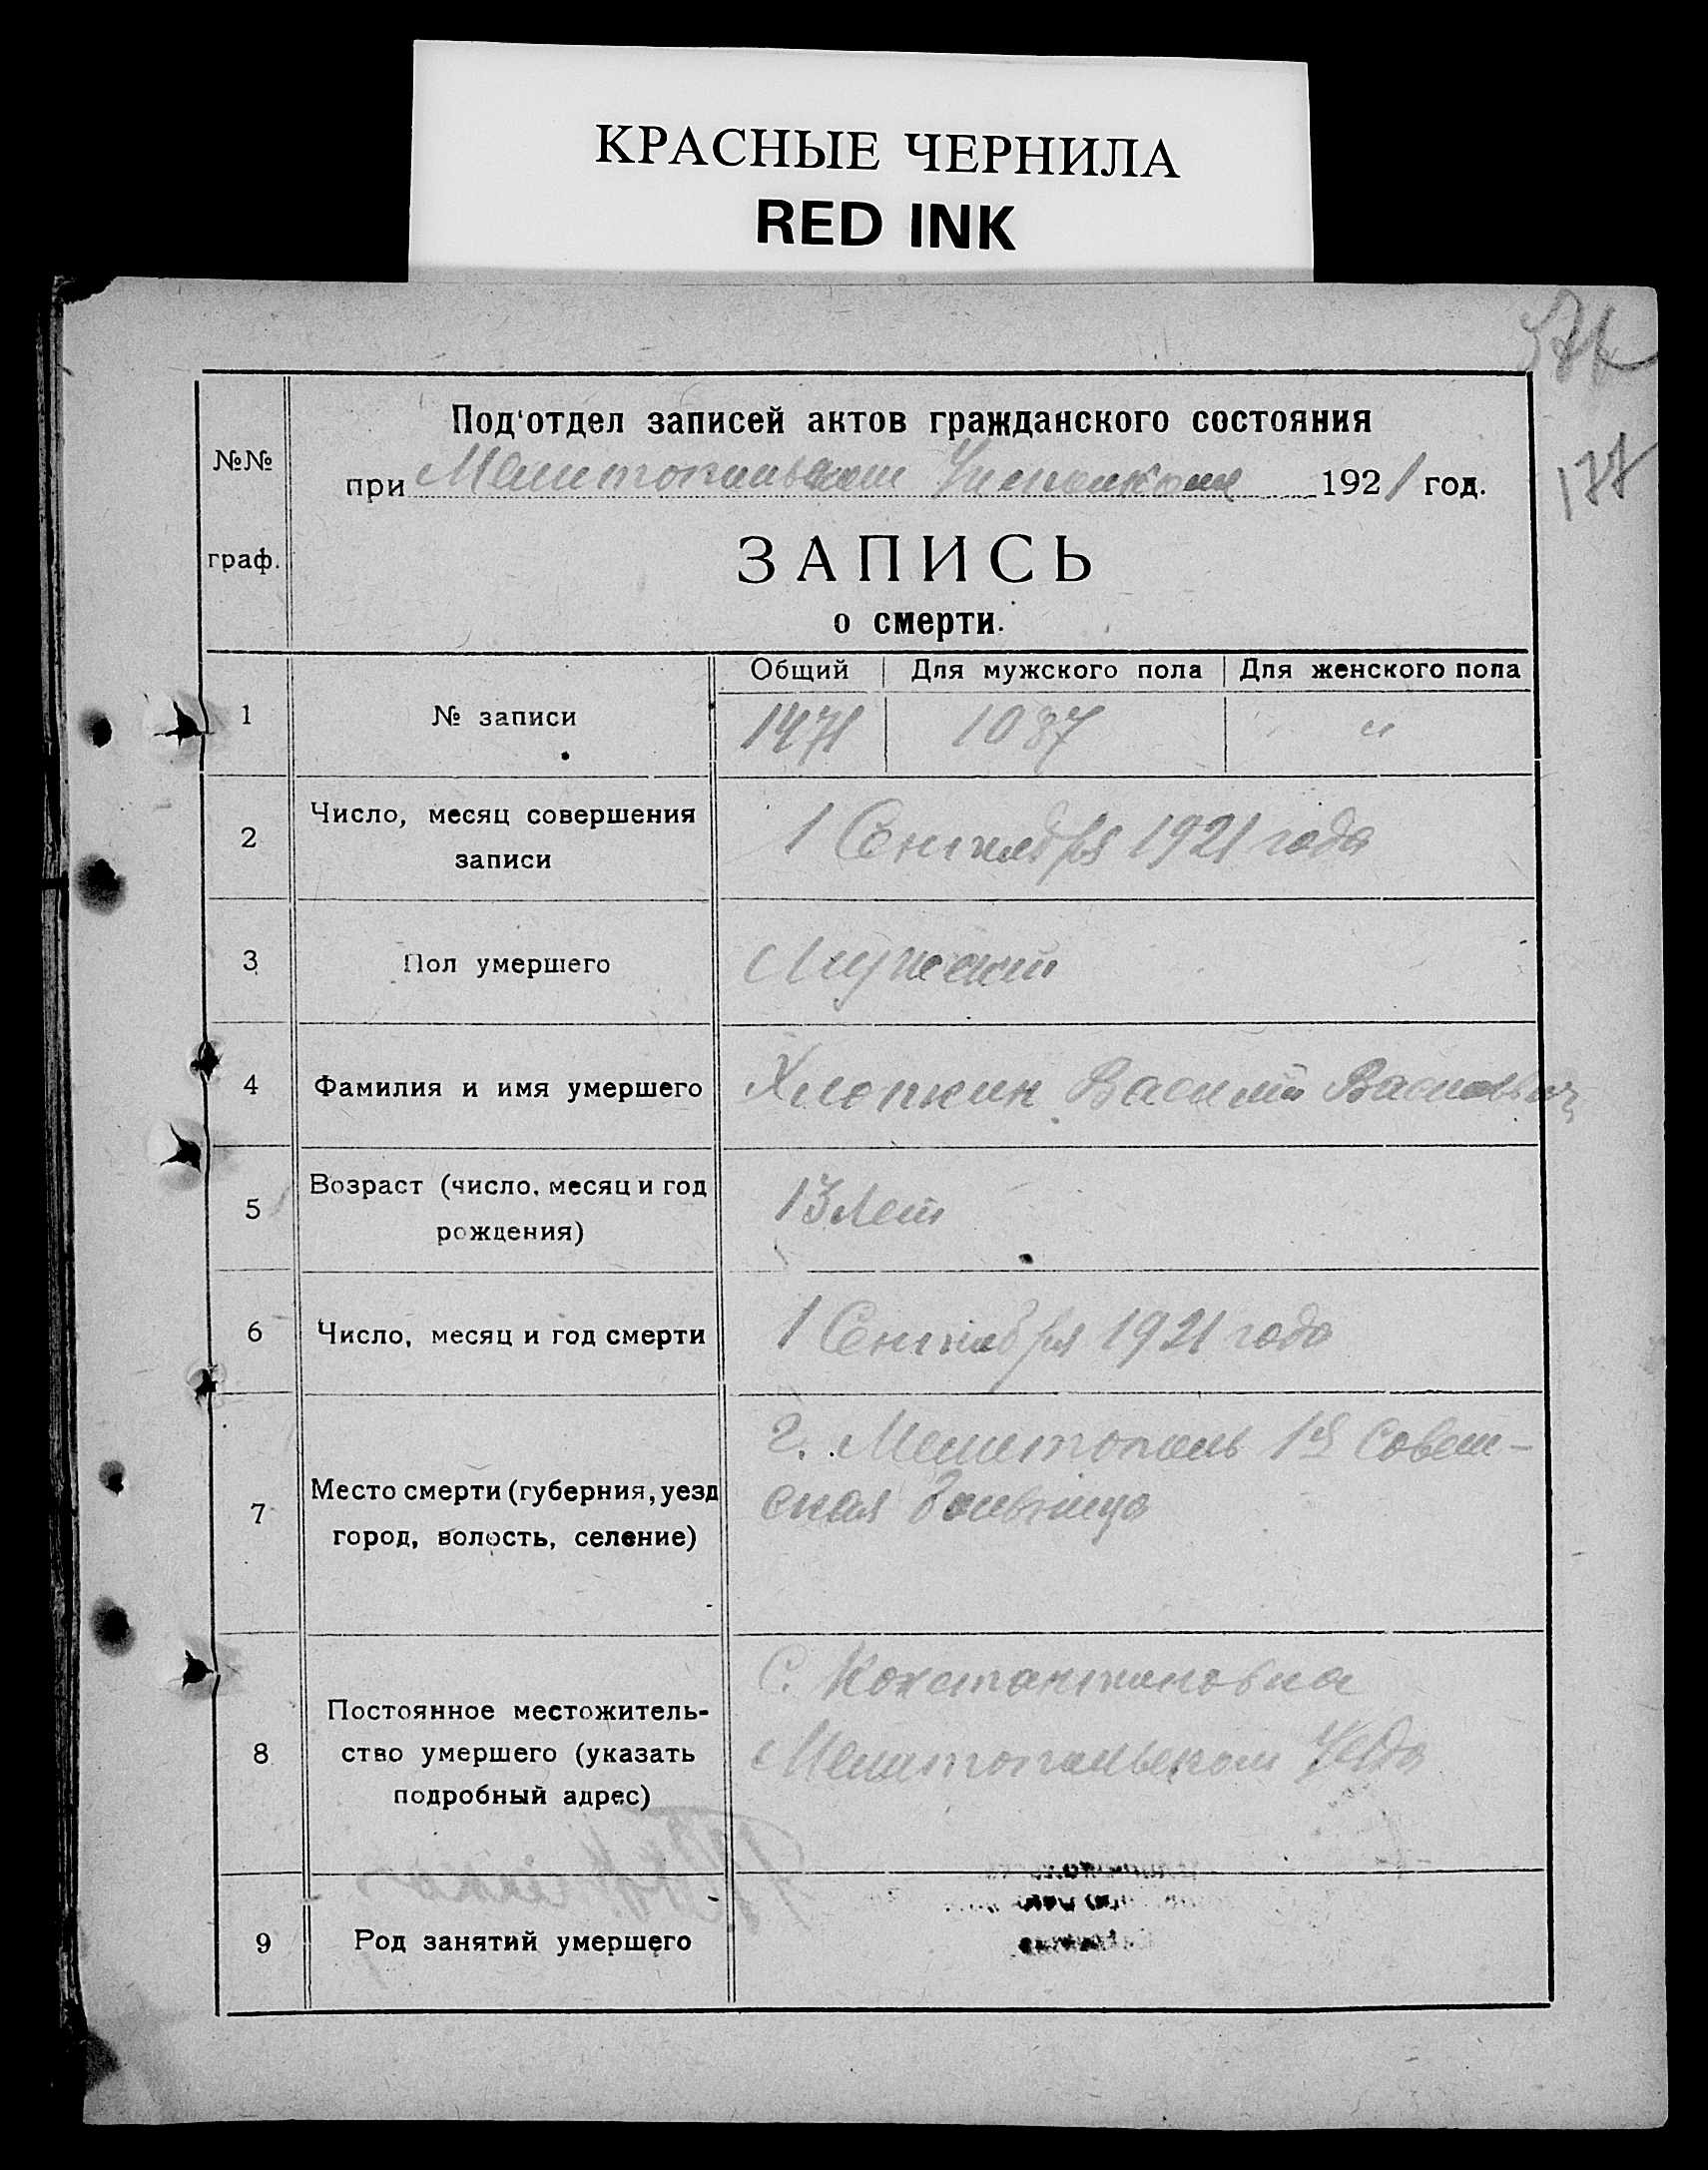 КРАСНЫЕ ЧЕРНИЛА
RED INK
177
Под'отдел записей актов гражданского состояния
№№ при Мелитопольском Уисполкоме 1921 год.
граф. ЗАПИСЬ
о смерти.
Общий Для мужского пола Для женского пола
1 № записи 1471 1087 "
2 Число, месяц совершения 1 Сентября 1921 года
записи
3 Пол умершего Мужской
4 Фамилия и имя умершего Хлопкин Василий Васильевич
5 Возраст (число, месяц и год 13 Лет
рождения)
6 Число, месяц и год смерти 1 Сентября 1921 года
г. Мелитополь 1я Совет-
7 Место смерти (губерния, уезд ская Больница
город, волость, селение)
С. Константиновка
8 Постоянное местожитель- Мелитопольском Уезда
ство умершего (указать
подробный адрес)
9 Род занятий умершего